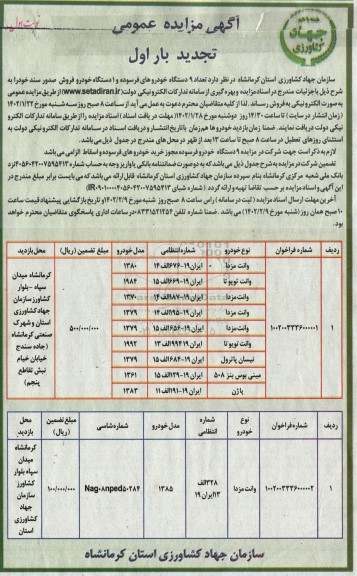 نوبت اول
جهاد کشاورزی
آگهی مزایده عمومی
تجدید بار اول
سازمان جهاد کشاورزی استان کرمانشاه در نظر دارد تعداد ۹ دستگاه خودرو های فرسوده و ۱ دستگاه خودرو فروش صدور سند خود را به
شرح ذیل با جزئیات مندرج در اسناد مزایده و بهره گیری از سامانه تدارکات الکترونیکی دولت (www.setadiran.ir) از طریق مزایده عمومی
به صورت الکترونیکی به فروش رساند. لذا از کلیه متقاضیان محترم دعوت به عمل می آید از ساعت ۸ صبح روز سه شنبه مورخ ۱۴۰۲/۱/۲۲
(زمان انتشار در سایت) تا ساعت ۱۴/۳۰ روز دوشنبه مورخ ۱۴۰۲/۱/۲۸ (مهلت دریافت اسناد) اسناد مزایده را از طریق سامانه تدارکات الکترو
نیکی دولت دریافت نمایند. ضمنا زمان بازدید خودرو ها هم زمان با تاریخ انتشار و دریافت اسناد در سامانه تدارکات الکترونیکی دولت به
استثنای روزهای تعطیل در ساعت ۸ صبح تا ساعت ۱۳ بعد از ظهر در محل های مندرج در جدول ذیل می باشد.
لازم به ذکر است جهت شرکت در مزایده ۹ دستگاه خودرو فرسوده مجوز خرید خودروهای فرسوده و اسقاط الزامی می باشد
تضمین شرکت در مزایده به شرح جدول ذیل می باشد که به دو صورت ضمانتنامه بانکی یا واریز وجه به حساب شماره
بانک ملی شعبه مرکزی کرمانشاه بنام سپرده سازمان جهاد کشاورزی استان کرمانشاه قابل ارائه می باشد که می بایست برابر مبلغ مندرج در
این آگهی و اسناد مزایده بر حسب تقاضا تهیه و ارائه گردد
آخرین مهلت ارسال اسناد مزایده (ثبت در سامانه) راس ساعت ۸ صبح روز شنبه مورخ ۱۴۰۲/۲/۹ و تاریخ بازگشایی پیشنهاد قیمت ساعت
۱۰ صبح همان روز (شنبه مورخ ۱۴۰۲/۲/۹) می باشد. ضمنا شماره تلفن ۰۸۳۳۱۵۲۱۲۵۲ در ساعات اداری پاسخگوی متقاضیان محترم خواهد
بود.
ردیف شماره فراخوان نوع خودرو شماره انتظامی مدل خودرو مبلغ تضمین (ریال) محل بازدید
۱ ۱۰۰۲۰۰۳۳۳۶۰۰۰۰۰۱ ۵۰۰/۰۰۰/۰۰۰
وانت مزدا ایران ۱۹-۶۷۶ الف ۱۴ ۱۳۸۰
وانت تویوتا ایران ۱۹-۶۶۹ الف ۱۵ ۱۹۸۴
وانت مزدا ایران ۱۹-۱۸۷ الف ۱۴ ۱۳۷۰
وانت مزدا ایران ۱۹-۱۹۵ الف ۱۴ ۱۳۷۹
وانت مزدا ایران ۱۹-۶۵۶ الف ۱۵ ۱۳۷۹
وانت تویوتا ۱۹۹۲
نیسان پاترول ایران ۱۹-۶۸۴ الف ۱۵ ۱۳۷۹
مینی بوس بنز ۵۰۸ ایران ۱۹-۱۳۹ الف ۱۵ ۱۳۶۱
پاژن ایران ۱۹-۱۹۱ الف ۱۱ ۱۳۸۳
کرمانشاه میدان
سپاه - بلوار
کشاورز سازمان
جهاد کشاورزی
استان و شهرک
صنعتی کرمانشاه
(جاده سنندج
خیابان خیام
نبش تقاطع
پنجم)
ردیف شماره فراخوان نوع خودرو شماره انتظامی مدل خودرو شماره شاسی مبلغ تضمین (ریال) محل بازدید
۱ ۱۰۰۲۰۰۳۳۳۶۰۰۰۰۰۲ وانت مزدا ۳۲۸ الف ۱۳ ایران ۱۹ ۱۳۸۵ Nag۰۸nped۵۰۲۸۴ ۱۰۰/۰۰۰/۰۰۰
کرمانشاه
میدان
سپاه بلوار
کشاورز
سازمان
جهاد
کشاورزی
استان
سازمان جهاد کشاورزی استان کرمانشاه